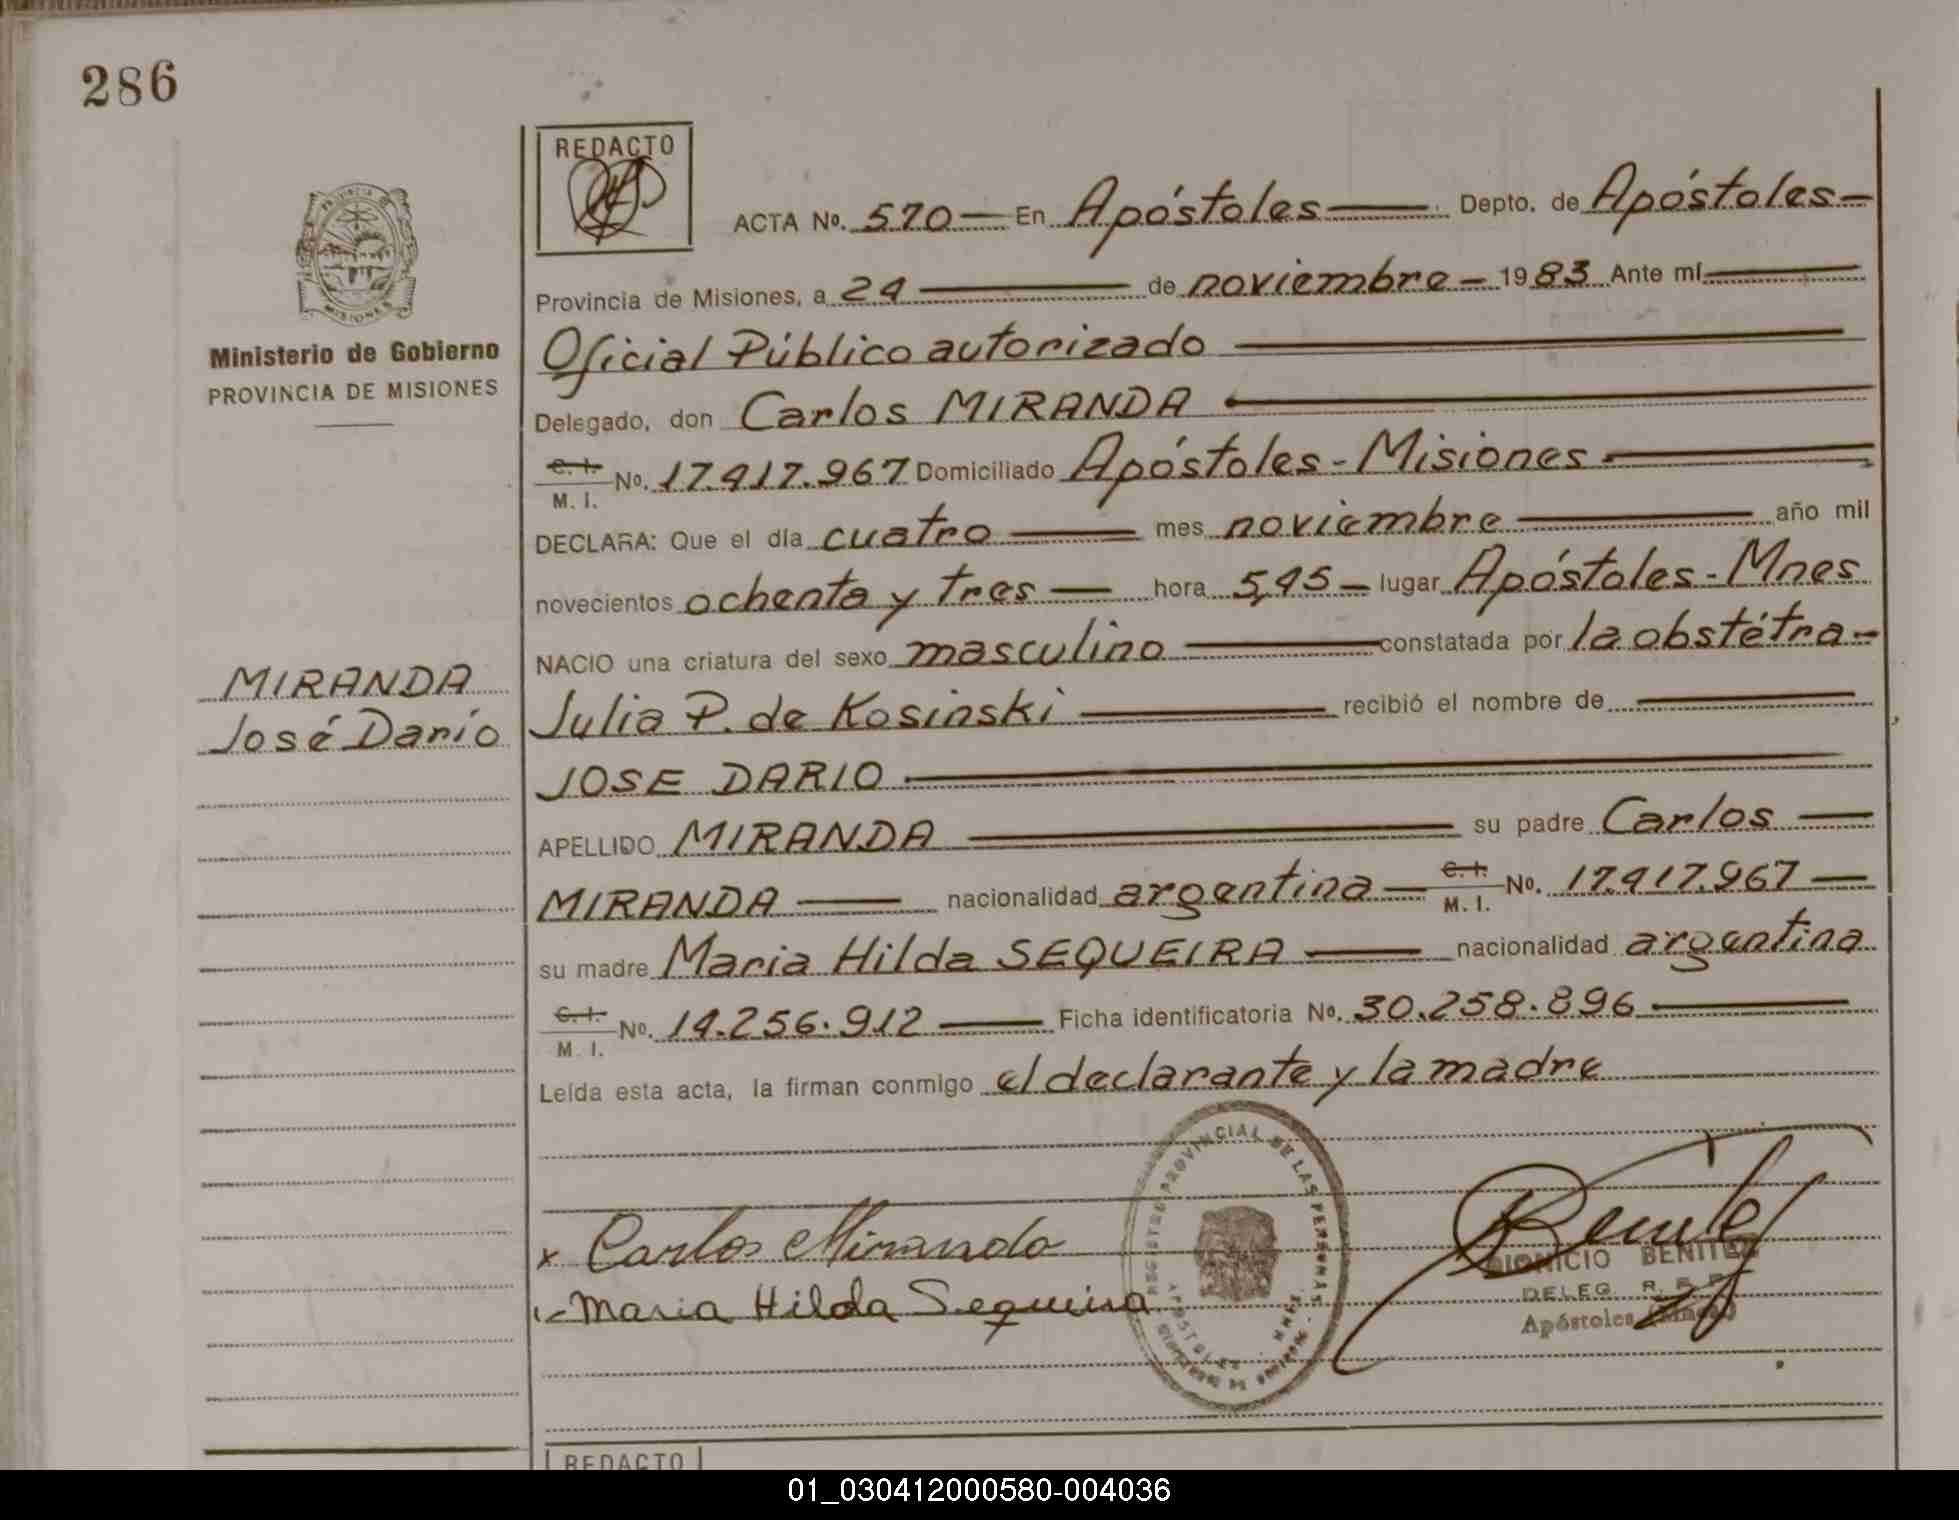 286
REDACTO
ACTA No. 570 — En Apóstoles — Depto. de Apóstoles —
Provincia de Misiones, a 24 — de noviembre — 1983 Ante mí —
Ministerio de Gobierno
PROVINCIA DE MISIONES
Oficial Público autorizado —
Delegado, don Carlos MIRANDA —
C. I. M. I. No. 17.417.967 Domiciliado Apóstoles - Misiones —
DECLARA: Que el día cuatro — mes noviembre — año mil
novecientos ochenta y tres — hora 5,45 — lugar Apóstoles - Mnes
NACIO una criatura del sexo masculino — constatada por la obstétra —
MIRANDA
José Darío
Julia P. de Kosinski — recibió el nombre de —
JOSE DARIO —
APELLIDO MIRANDA — su padre Carlos —
MIRANDA — nacionalidad argentina — C. I. M. I. No. 17.417.967 —
su madre Maria Hilda SEQUEIRA — nacionalidad argentina
C. I. M. I. No. 14.256.912 — Ficha identificatoria No. 30.258.896 —
Leída esta acta, la firman conmigo el declarante y la madre
REGISTRO PROVINCIAL DE LAS PERSONAS
APOSTOLES
x Carlos Miranda
Maria Hilda Sequeira
DIONICIO BENITEZ
DELEG. R. P. P.
Apóstoles (Mnes.)
REDACTO
01_030412000580-004036